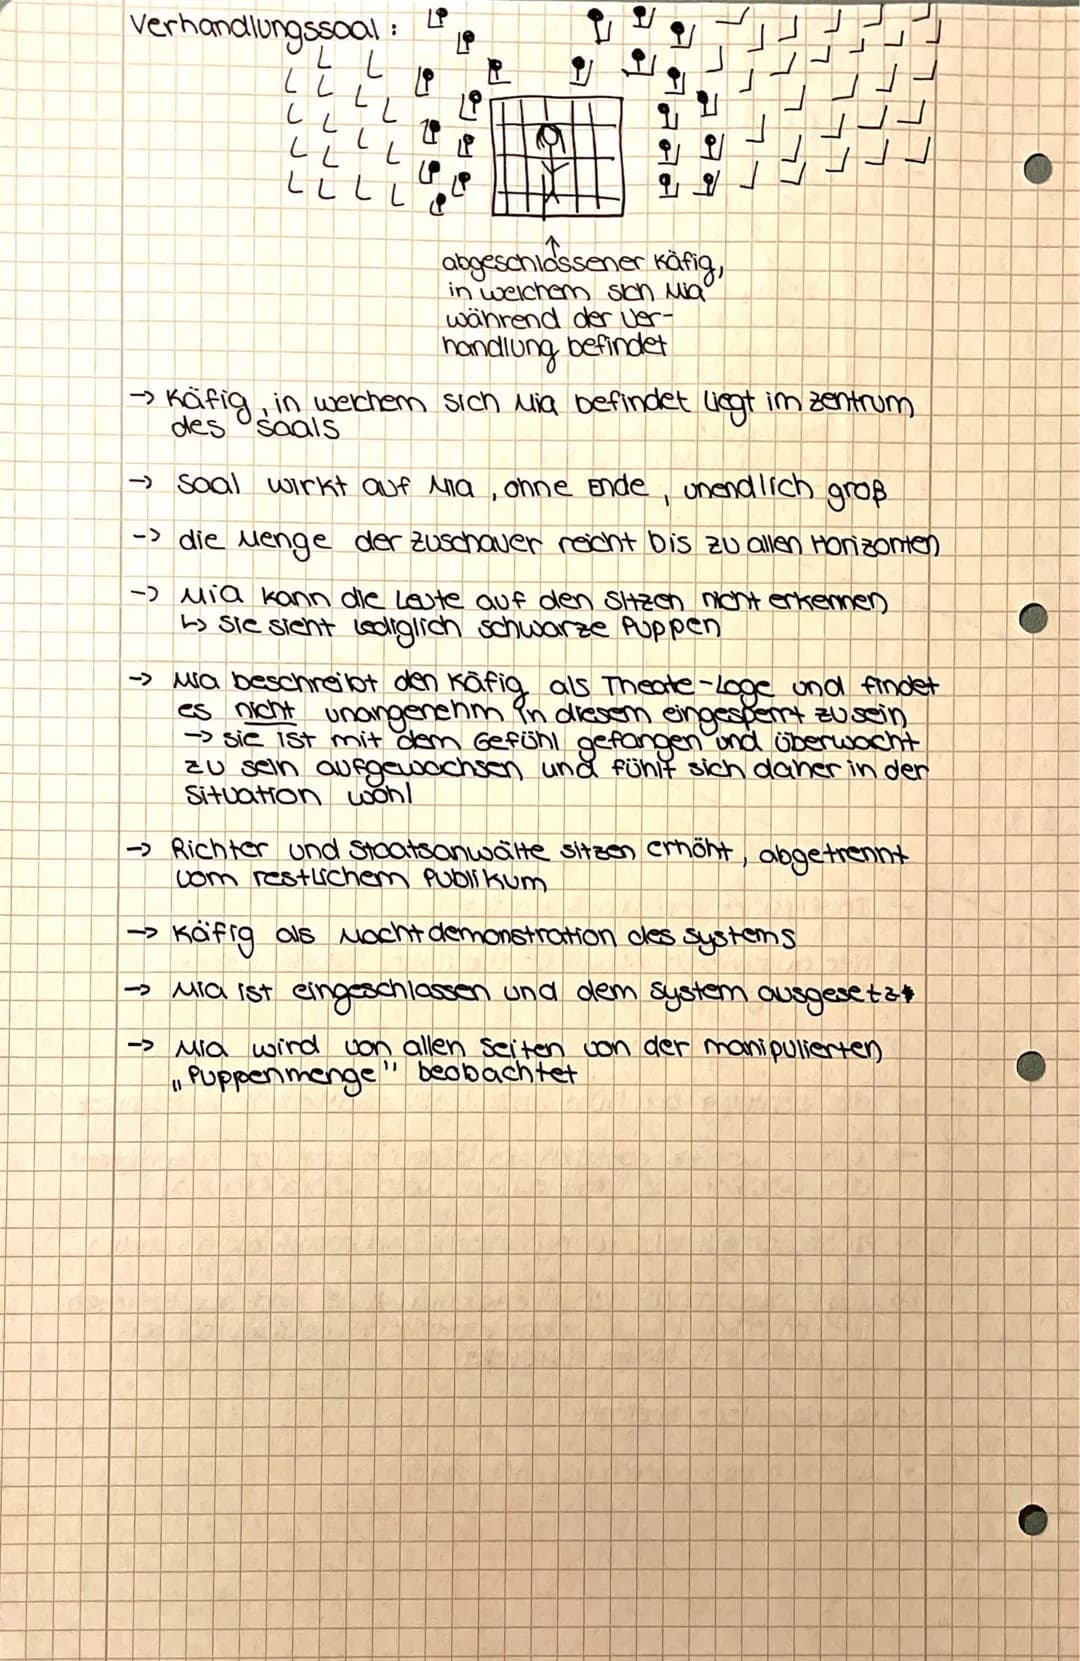 Verhandlungssaal:
abgeschlossener Käfig,
in welchem sich Mia
während der Ver-
handlung befindet
→ Käfig, in welchem sich Mia befindet liegt im Zentrum
des Saals
→ Saal wirkt auf Mia, ohne Ende, unendlich groß
→ die Menge der Zuschauer reicht bis zu allen Horizonten
→ Mia kann die Leute auf den Sitzen nicht erkennen
↳ sie sieht lediglich schwarze Puppen
→ Mia beschreibt den Käfig als Theate-Loge und findet
es nicht unangenehm in diesem eingesperrt zu sein
→ sie ist mit dem Gefühl gefangen und überwacht
zu sein aufgewachsen und fühlt sich daher in der
Situation wohl
→ Richter und Staatsanwälte sitzen erhöht, abgetrennt
vom restlichem Publikum
→ Käfig als Machtdemonstration des Systems
→ Mia ist eingeschlossen und dem System ausgesetzt
→ Mia wird von allen Seiten von der manipulierten
„Puppenmenge" beobachtet